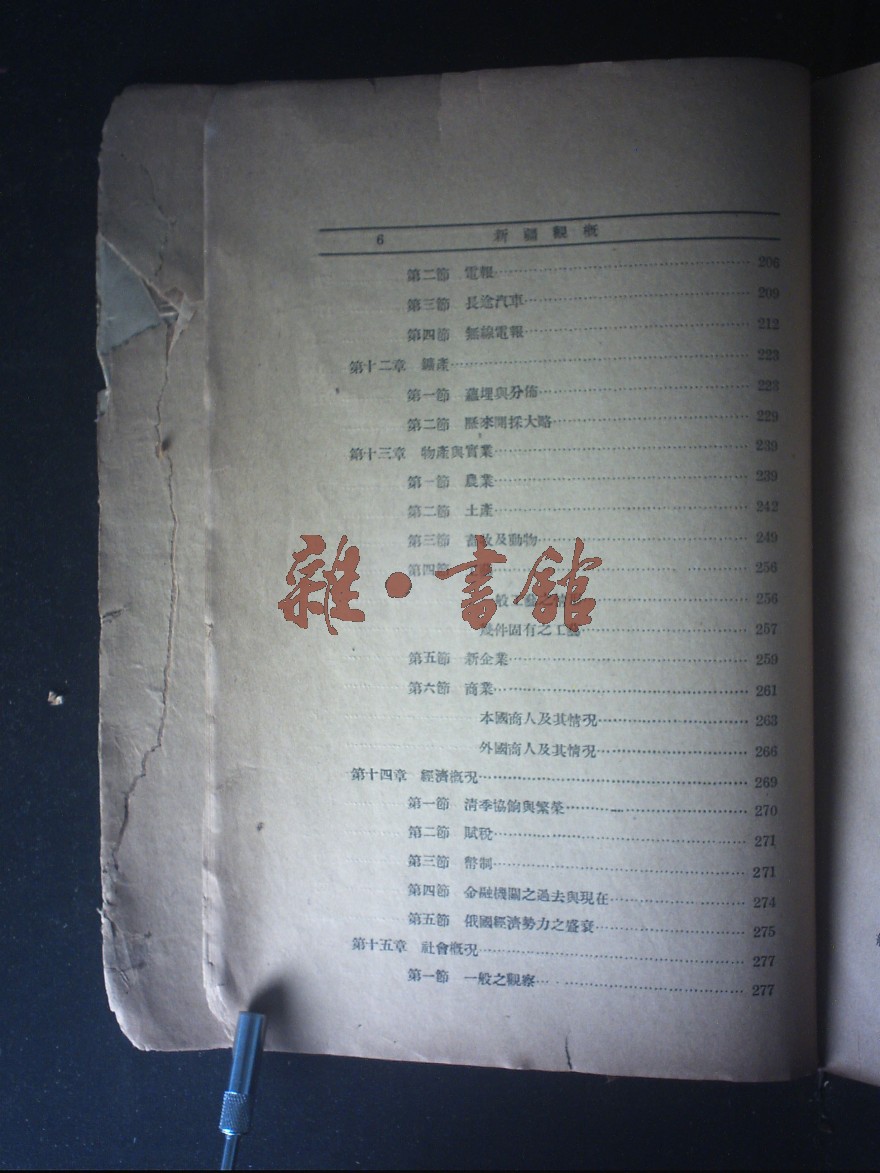 6 新疆觀概
第二節 電報 206
第三節 長途汽車 209
第四節 無線電報 212
第十二章 鑛產 223
第一節 蘊埋與分佈 223
第二節 歷來開採大略 229
第十三章 物產與實業 239
第一節 農業 239
第二節 土產 242
第三節 畜牧及動物 249
第四節 256
般工 256
幾件固有之工藝 257
第五節 新企業 259
第六節 商業 261
本國商人及其情況 263
外國商人及其情況 266
第十四章 經濟概況 269
第一節 清季協餉與繁榮 270
第二節 賦稅 271
第三節 幣制 271
第四節 金融機關之過去與現在 274
第五節 俄國經濟勢力之盛衰 275
第十五章 社會概況 277
第一節 一般之觀察 277
雜·書館